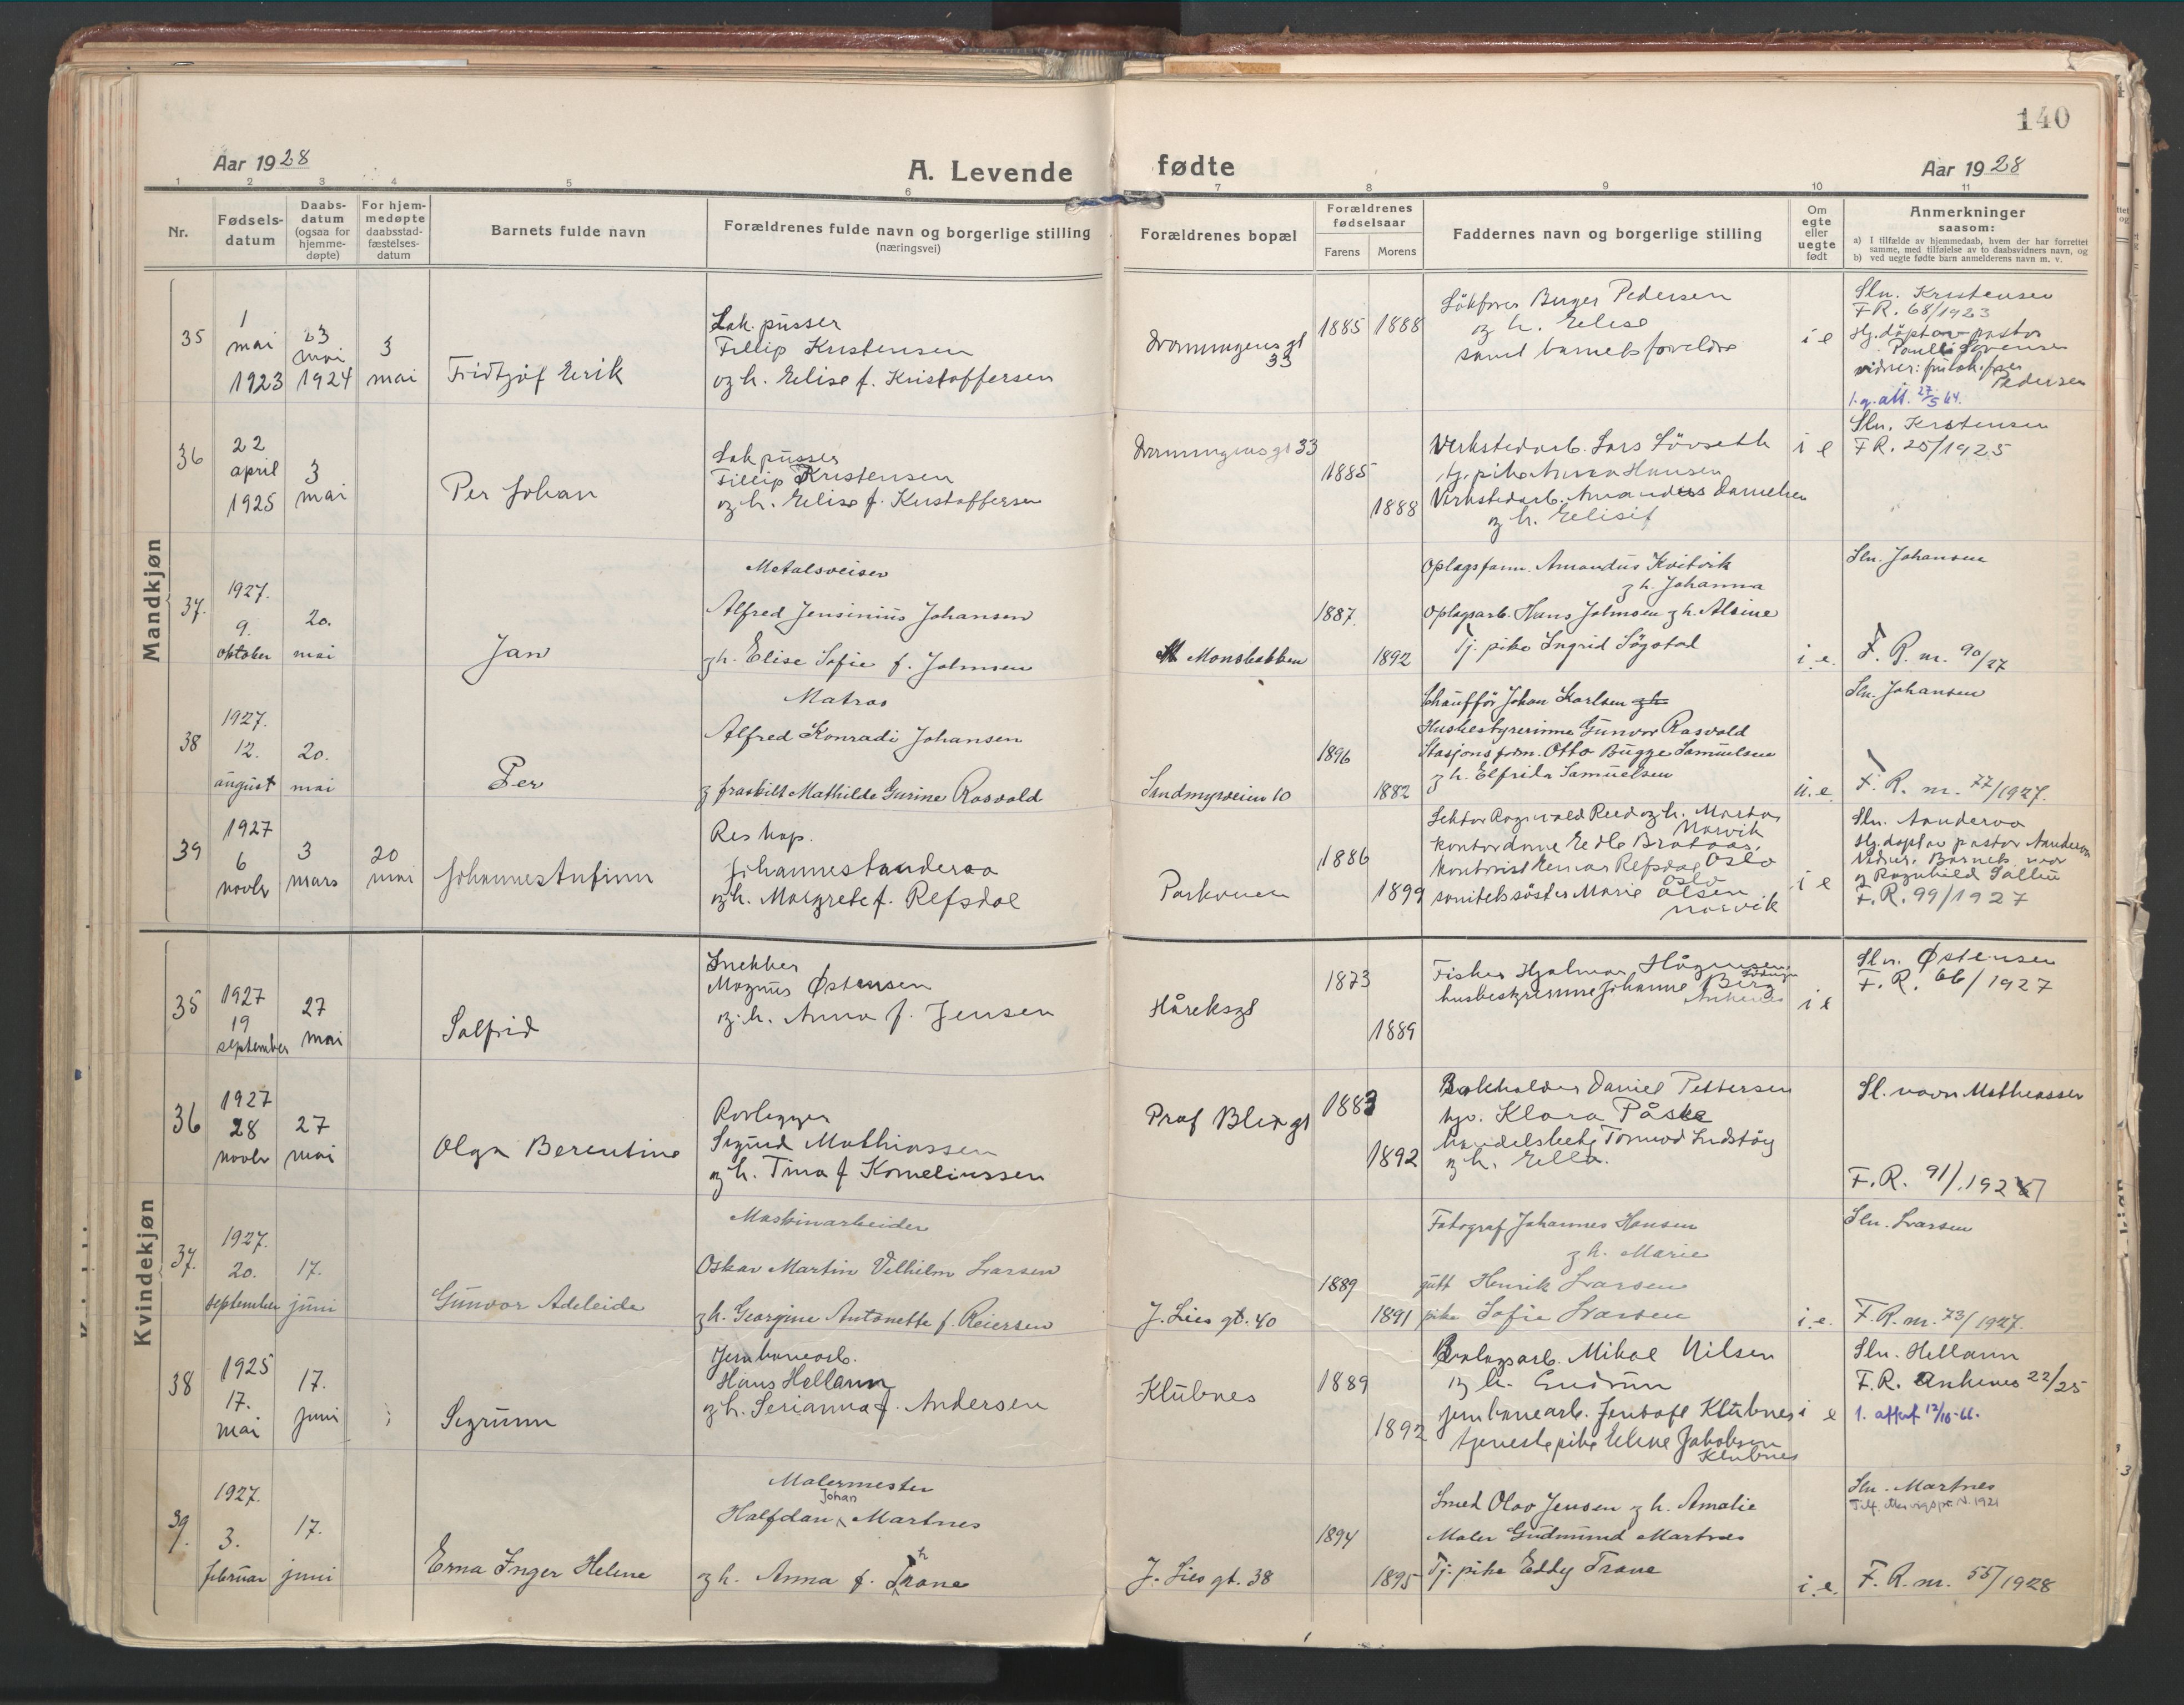 140
Aar 1928
A. Levende fødte
Aar 1928
1 2 3 4 5 6 7 8 9 10 11
Nr.
Fødsels-
datum
Daabs-
datum
(ogsaa for
hjemme-
døpte)
For hjem-
medøpte
daabsstad-
fæstelses-
datum
Barnets fulde navn
Forældrenes fulde navn og borgerlige stilling
(næringsvei)
Forældrenes bopæl
Forældrenes
fødselsaar
Farens Morens
Faddernes navn og borgerlige stilling
Om
egte
eller
uegte
født
Anmerkninger
saasom:
a) I tilfælde av hjemmedaab, hvem der har forrettet
samme, med tilføielse av to daabsvidners navn, og
b) ved uegte fødte barn anmelderens navn m. v.
Mandkjøn
35
1
mai
1923
23
mai
1924
3
mai
Fridtjof Eirik
Lok. pusser
Fillip Kristensen
og h. Elise f. Kristoffersen
Dronningensgt
33
1885 1888
Lokfører Birger Pedersen
og h. Elise
samt barnets foreldre
i e
Sln. Kristensen
F.R. 68/1923
Hj. døpt av pastor
Sørensen
Pedersen
1.g. att. 27/5 64.
36
22
april
1925
3
mai
Per Johan
Lok pusser
Fillip Kristensen
og h. Elise f. Kristoffersen
Dronningensgt 33
1885
1888
Verkstedarb. Lars Løvseth
tj. pike Anna Hansen
Verkstedarb. Amandus Danielsen
og h. Elisif
i e
Sln. Kristensen
F R. 25/1925
37.
1927.
9.
oktober
20.
mai
Jan
Metalsveiser
Alfred Jensinius Johansen
og h. Elise Sofie f. Johnsen
Monsbakken
1887.
1892
Oplagsform. Amandus Kvitvik
og h. Johanna
Oplagsarb. Hans Johnsen og h. Alsine
Tj. pike Ingrid Søgstad
i. e.
Sln. Johansen
F. R. nr. 90/27
38
1927.
12.
august
20.
mai
Per
Matros
Alfred Konradi Johansen
og fraskilt Mathilde Gurine Rasvold
Sandmyrveien 10
1896
1882
Chauffør Johan Karlsen og h.
Husbestyrerinne Gunvor Rasvold
Stasjonsform. Otto Bugge Samuelsen
og h. Elfrida Samuelsen
u. e.
Sln. Johansen
F. R. nr. 77/1927.
39
1927
6
novbr
3
mars
20
mai
Johannes Anfinn
Res kap.
Johannes Aanderaa
og h. Margrete f. Refsdal
Parkveien
1886
1899
Lektor Ragnvald Reed og h. Marta,
Narvik
kontordame Edle Brataas,
Oslo
kontorist Einar Refsdal
Oslo
sanitetssøster Marie Olsen
Narvik
i e
Sln. Aanderaa
Hj. døpt av pastor Aanderaa
Vidner: Barnets mor
og Ragnhild
F. R. 99/1927
Kvindekjøn
35
1927
19
september
27
mai
Solfrid
Snekker
Magnus Østensen
og h. Anna f. Jensen
Håreksgt
1873
1889
Fisker Hjalmar Hågensen,
husbestyrerinne Johanne Berg
Ankenes
i e
Sln. Østensen
F. R. 66/1927
36
1927
28
novbr
27
mai
Olga Berentine
Rørlegger
Sigurd Mathiassen
og h. Tina f Korneliussen
Prof Blixgt
1883
1892
Bokholder Daniel Pettersen
hjv. Klara Påske
handelsbetj Tormod Indstøy
og h. Ella.
Sl. navn Mathiassen
F. R. 91/1927
37.
1927.
20.
september
17.
juni
Gunvor Adeleide
Maskinarbeider
Oskar Martin Vilhelm Larsen
og h. Georgine Antonette f. Reiersen
J. Lies gt. 40
1889
1891
Fotograf Johannes Hansen
og h. Marie
gutt Henrik Larsen
pike Sofie Larsen
i. e.
Sln. Larsen
F. R. nr. 73/1927.
38
1925
17.
mai
17.
juni
Sigrunn
Jernbanearb.
Hans Hellann
og h. Serianna f. Andersen
Klubnes
1889
1892
Anlagsarb. Mikal Nilsen
og h. Gudrun
jernbanearb. Jentoft Klubnes
tjenestepike Elene Jakobsen
Klubnes
i e
Sln. Hellann
F. R. Ankenes 22/25
1. attest 12/10-66.
39.
1927.
3.
februar
17.
juni
Erna Inger Helene
Malermester
Johan
Halfdan Martnes
og h. Anna f. Thrane
J. Lies gt. 38
1894
1895
Smed Olav Jensen og h. Amalie
Maler Gudmund Martnes
Tj. pike Eddy Trane
i. e.
Sln. Martnes
F. R. nr. 55/1928